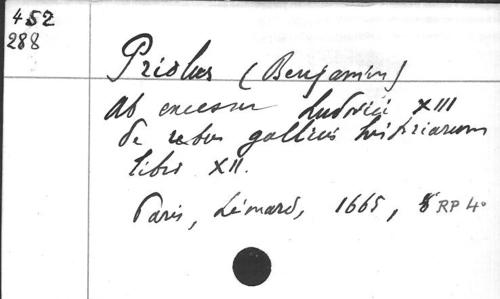 452
288
Priolus (Benjamin)
Ab excessu Ludovici XIII
de rebus gallicis historiarum
libri XII.
Paris, Léonard, 1665, RP 4°